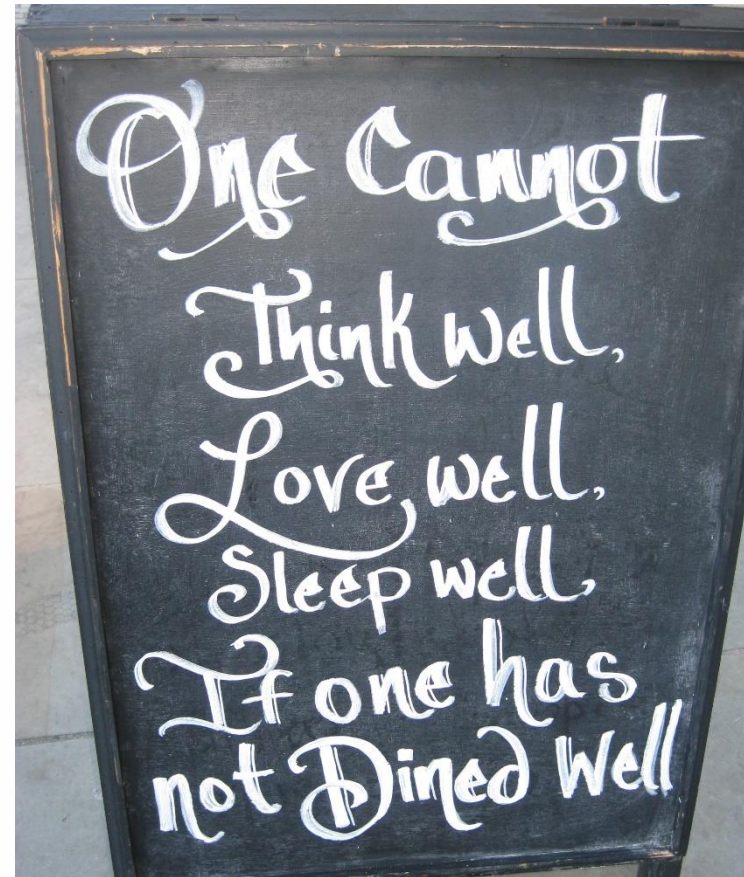 One Cannot
Think well,
Love well,
Sleep well,
If one has
not Dined Well